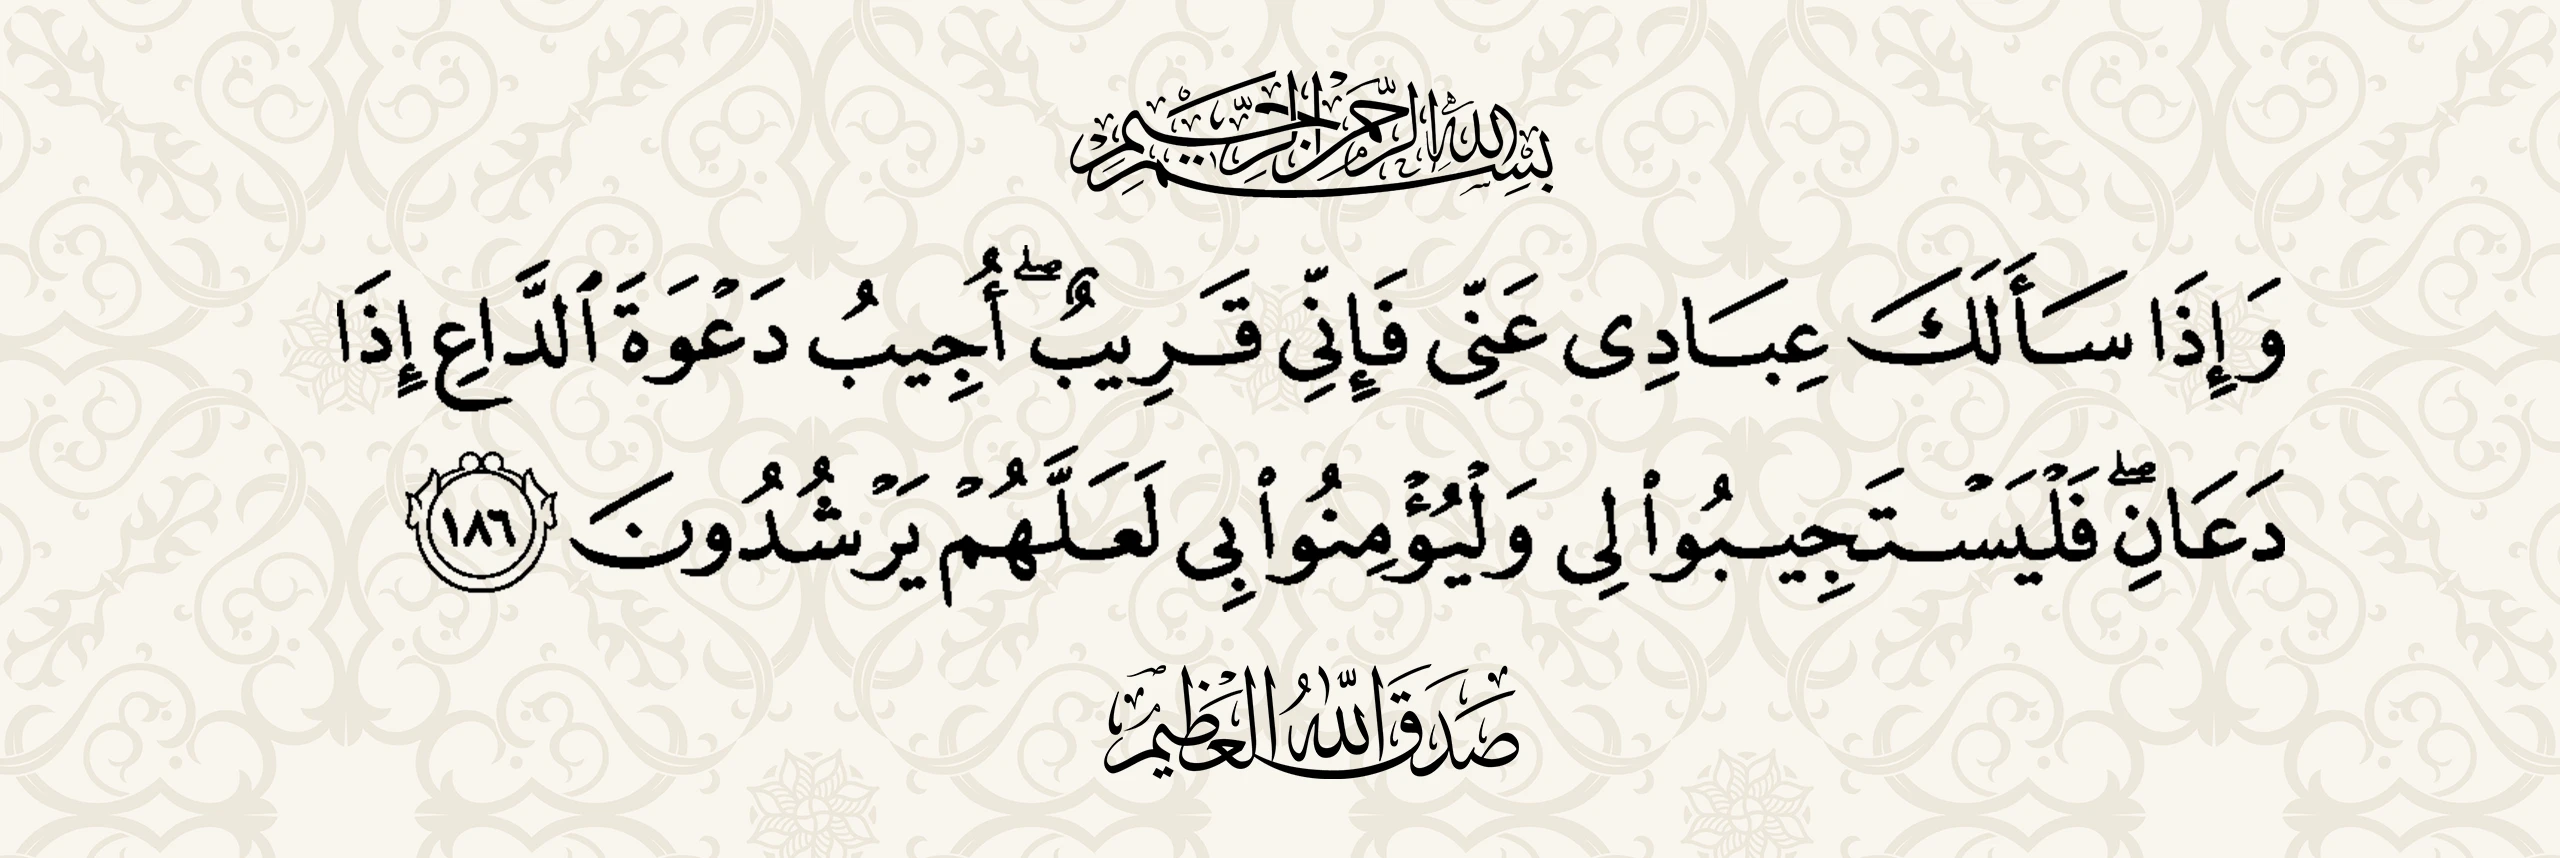 بِسْمِ اللَّهِ الرَّحْمَٰنِ الرَّحِيمِ
وَإِذَا سَأَلَكَ عِبَادِى عَنِّى فَإِنِّى قَرِيبٌ ۖ أُجِيبُ دَعْوَةَ ٱلدَّاعِ إِذَا
دَعَانِ ۖ فَلْيَسْتَجِيبُوا۟ لِى وَلْيُؤْمِنُوا۟ بِى لَعَلَّهُمْ يَرْشُدُونَ ١٨٦
صَدَقَ اللَّهُ الْعَظِيمُ